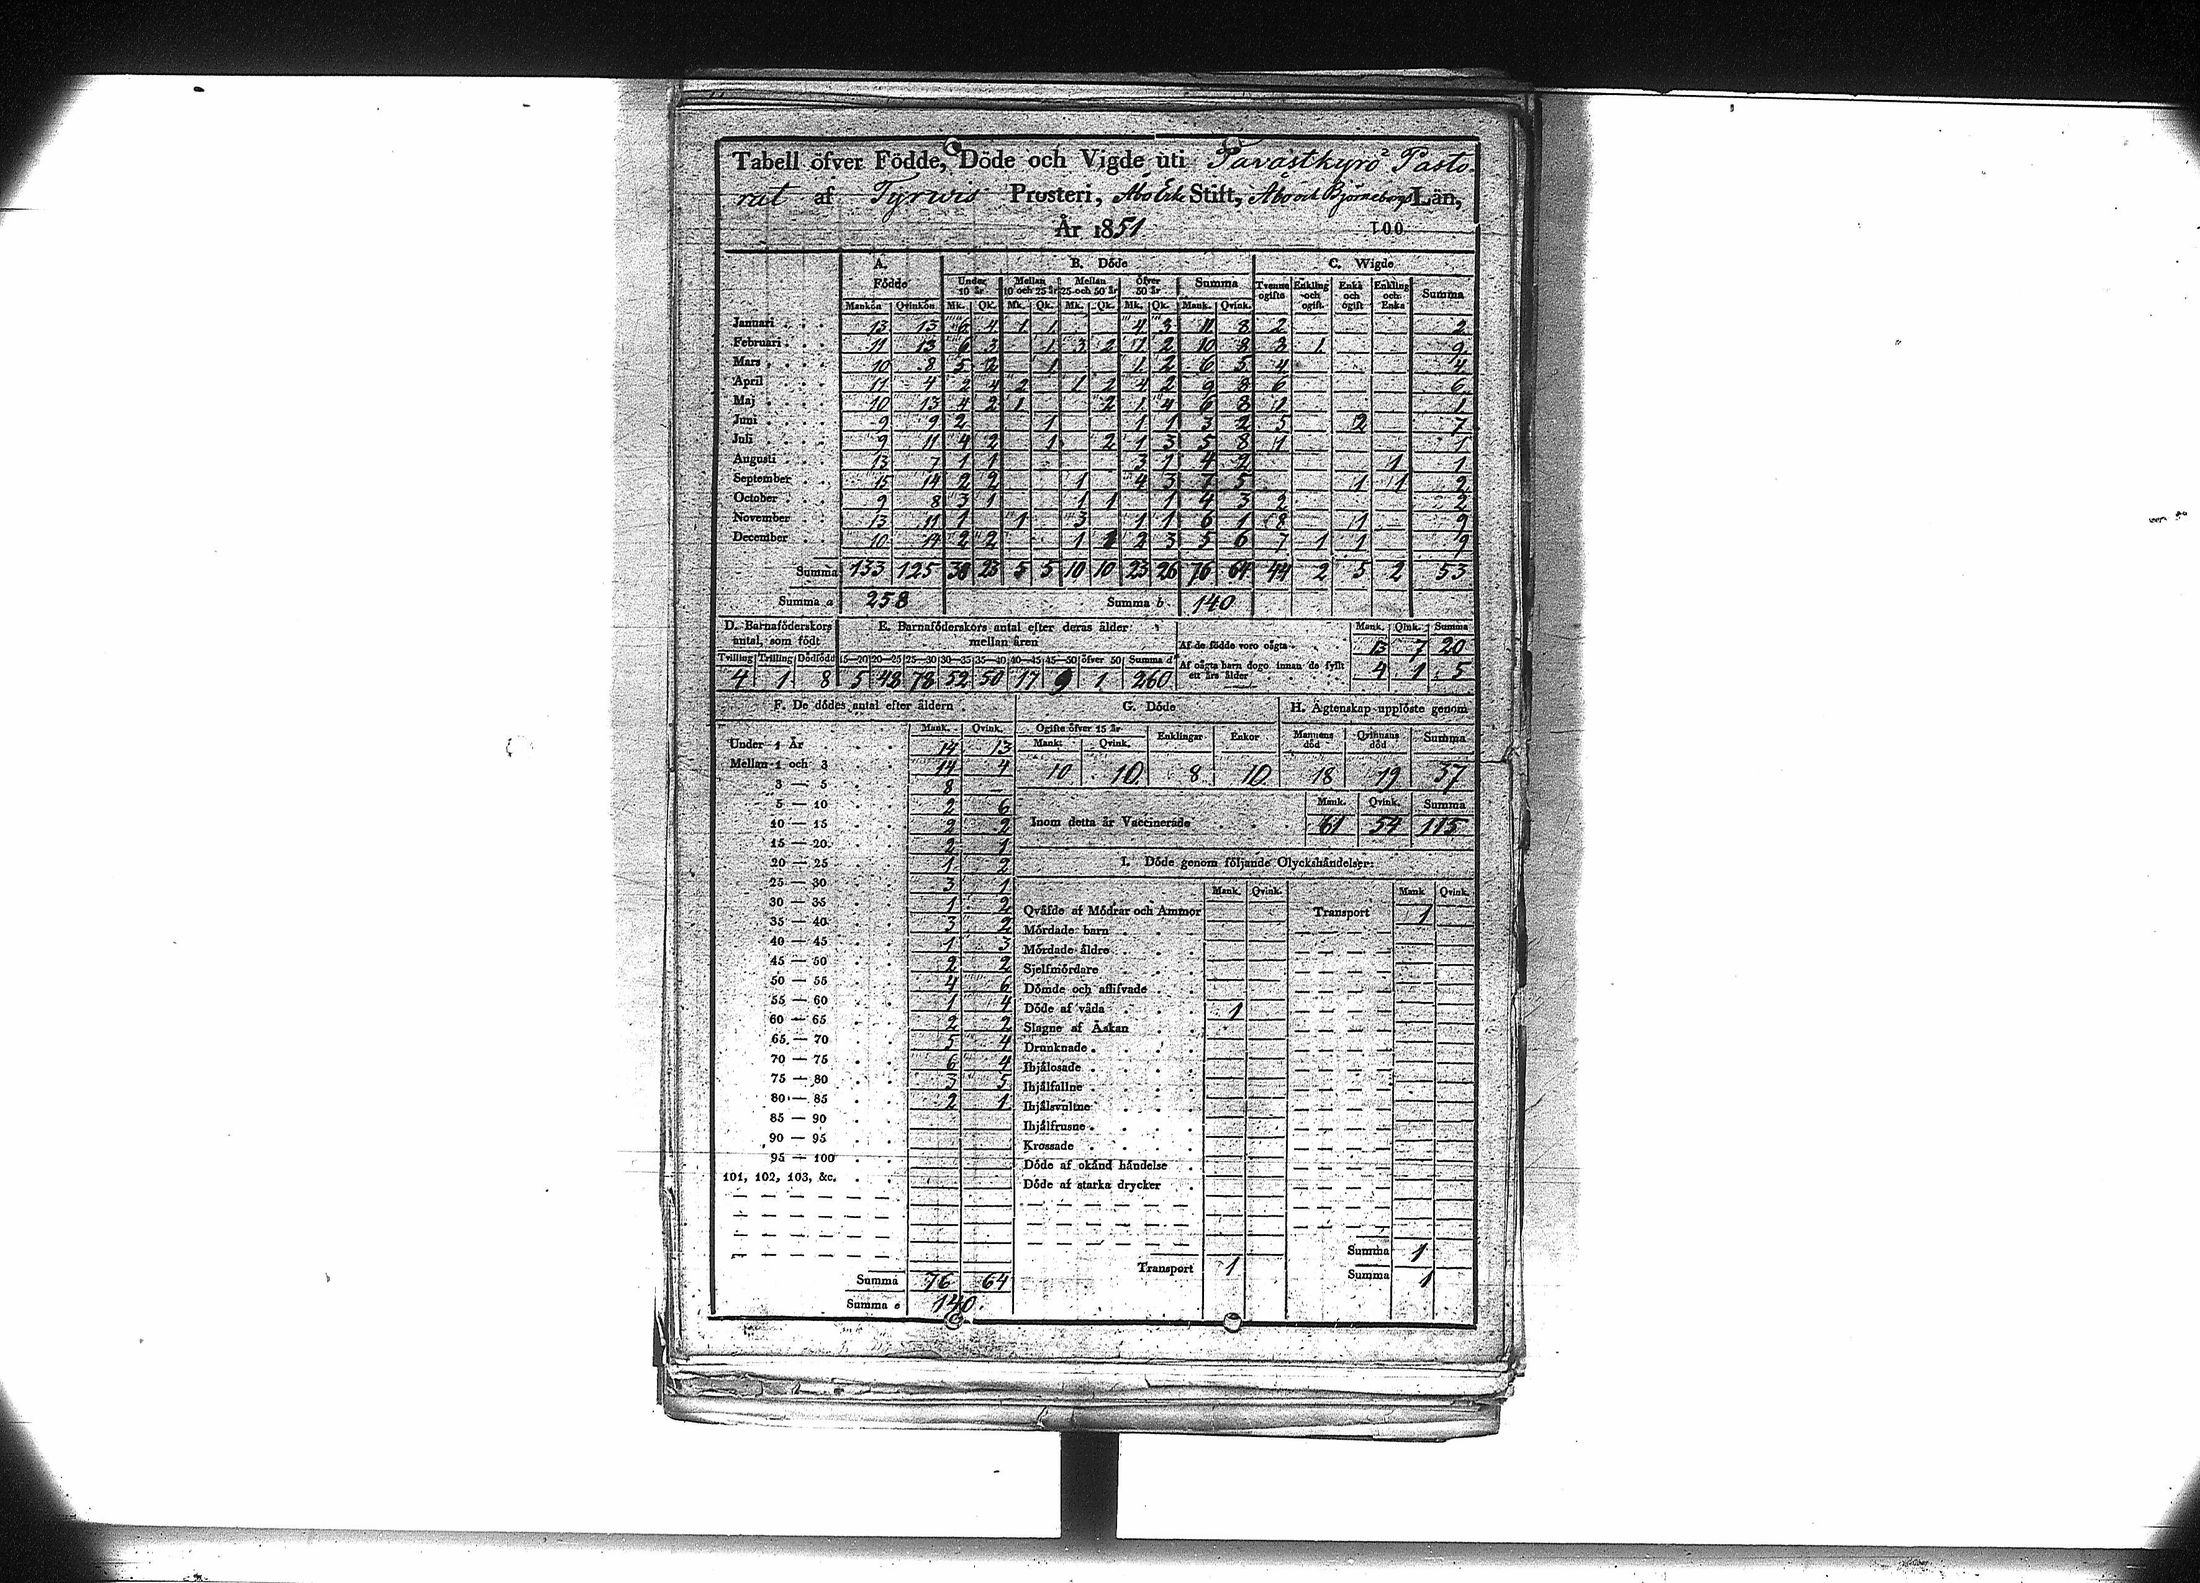 Tabell öfver Födde, Döde och Vigde uti Tavastkyrö Pasto-
rat af Tyrwis Prosteri, Åbo Erke Stift, Åbo och Björneborgs Län,
År 1851 100
A. Födde B. Döde C. Wigde
Under 10 år Mellan 10 och 25 år Mellan 25 och 50 år Öfver 50 år Summa Tvenne ogifte Enkling och ogift Enka och ogift Enkling och Enka Summa
Mankön Qvinkön Mk. Qk. Mk. Qk. Mk. Qk. Mk. Qk. Mank. Qvink.
Januari 13 13 6 4 1 1 4 3 11 8 2 2
Februari 11 13 6 3 1 3 2 1 2 10 8 3 1 9
Mars 10 8 5 2 1 1 2 6 5 4 4
April 11 4 2 4 2 1 2 4 2 9 8 6 6
Maj 10 13 4 2 1 2 1 4 6 8 1 1
Juni 9 9 2 1 1 1 3 2 5 2 7
Juli 9 11 4 2 1 2 1 3 5 8 1 1
Augusti 13 7 1 1 3 1 4 2 1 1
September 15 14 2 2 1 4 3 7 5 1 1 2
October 9 8 3 1 1 1 1 4 3 2 2
November 13 11 1 1 3 1 1 6 1 8 1 9
December 10 14 2 2 1 1 2 3 5 6 7 1 1 9
Summa 133 125 38 23 5 5 10 10 23 26 76 64 44 2 5 2 53
Summa a 258 Summa b 140
D. Barnaföderskors antal, som födt
Tvilling Trilling Dödfödd
4 1 8
E. Barnaföderskors antal efter deras ålder mellan åren
15—20 20—25 25—30 30—35 35—40 40—45 45—50 öfver 50 Summa d
5 48 78 52 50 17 9 1 260
Mank. Qink. Summa
Af de födde voro oägta 13 7 20
Af oägta barn dogo innan de fyllt ett års ålder 4 1 5
F. De dödes antal efter åldern
Mank. Qvink.
Under 1 År 14 13
Mellan 1 och 3 14 4
3 — 5 8 —
5 — 10 2 6
10 — 15 2 2
15 — 20 2 1
20 — 25 1 2
25 — 30 3 1
30 — 35 1 2
35 — 40 3 2
40 — 45 1 3
45 — 50 2 2
50 — 55 4 6
55 — 60 1 4
60 — 65 2 2
65 — 70 5 4
70 — 75 6 4
75 — 80 3 5
80 — 85 2 1
85 — 90
90 — 95
95 — 100
101, 102, 103, &c.
Summa 76 64
Summa e 140
G. Döde
Ogifte öfver 15 år Enklingar Enkor
Mank. Qvink.
10 10 8 10
H. Ägtenskap upplöste genom
Mannens död Qvinnans död Summa
18 19 37
Mank. Qvink. Summa
Inom detta år Vaccinerade 61 54 115
I. Döde genom följande Olyckshändelser:
Mank. Qvink. Mank Qvink.
Qväfde af Mödrar och Ammor Transport 1
Mördade barn
Mördade äldre
Sjelfmördare
Dömde och aflifvade
Döde af våda 1
Slagne af Åskan
Drunknade
Ihjälosade
Ihjälfallne
Ihjälsvultne
Ihjälfrusne
Krossade
Döde af okänd händelse
Döde af starka drycker
Summa 1
Transport 1 Summa 1